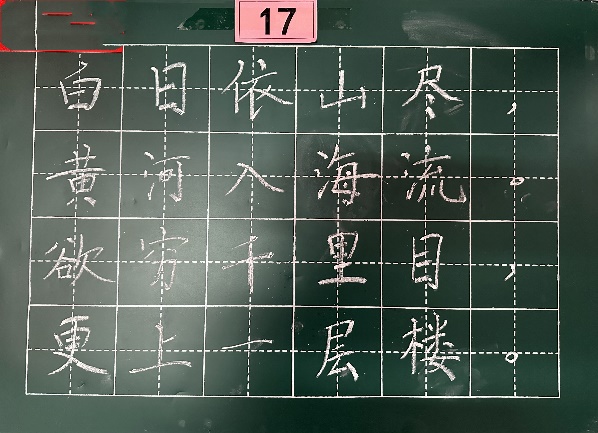 17
白日依山尽，
黄河入海流。
欲穷千里目，
更上一层楼。